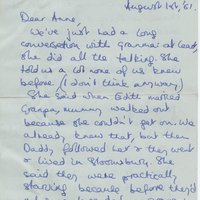 August 1st, '61.
Dear Anne,
We've just had a long
conversation with Grannie at least,
she did all the talking. She
told us a lot none of us knew
before (I don't think anyway)
She said when Edith married
Grandpa, mummy walked out
because she couldn't get on. We
already knew that, but then
Daddy followed her & they went
& lived in Bloomsbury. She
said they were practically
starving because before they'd